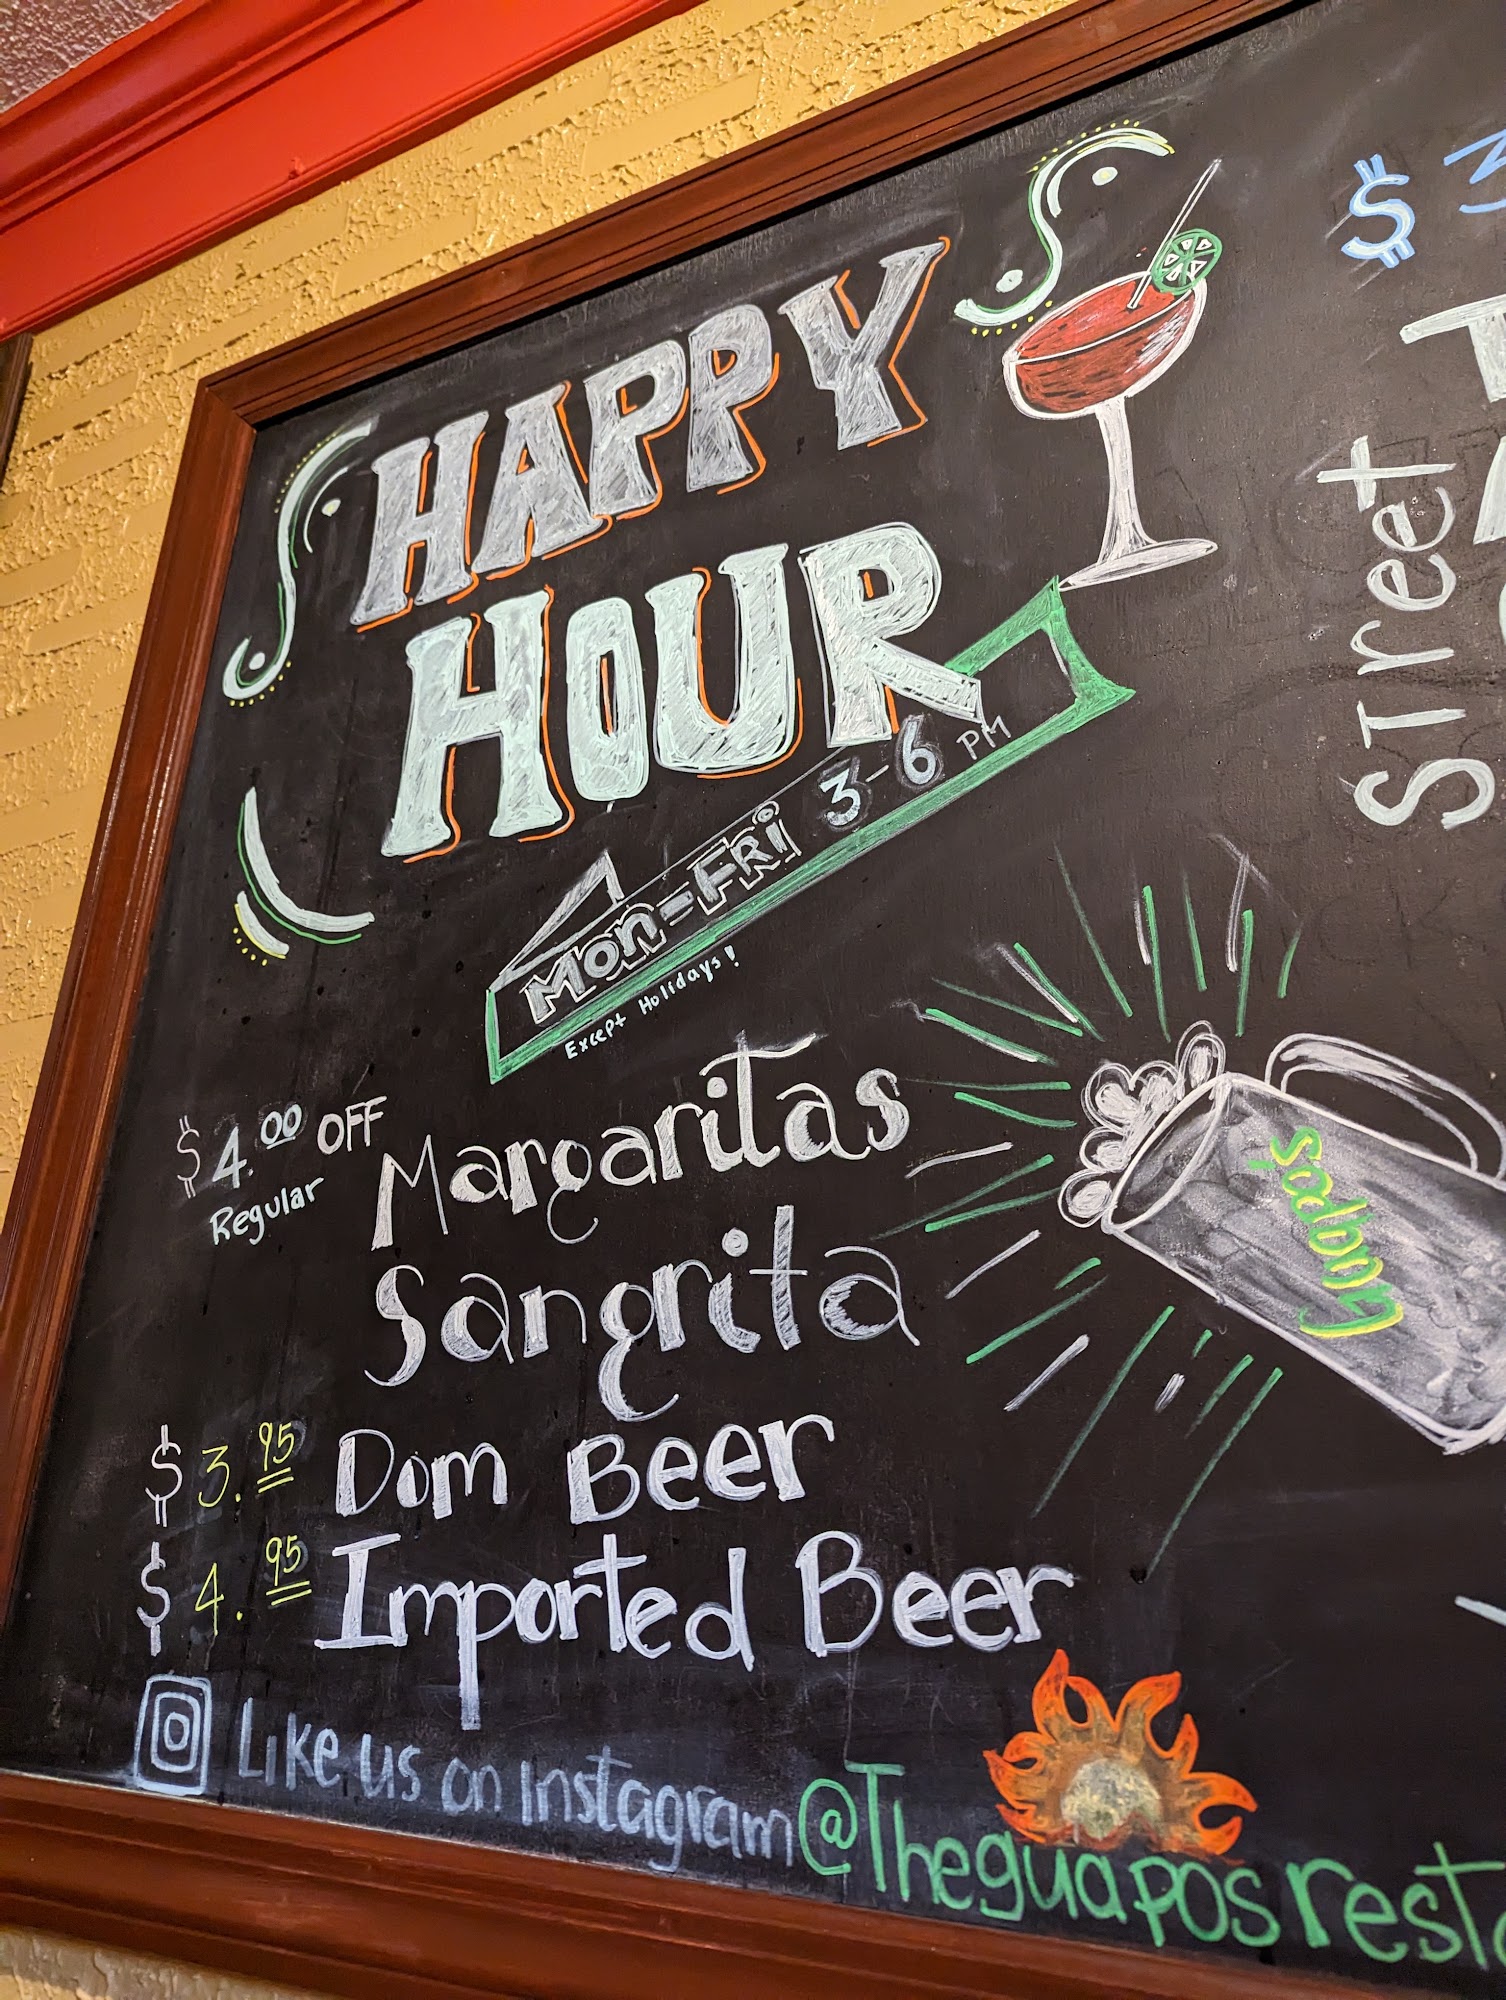 HAPPY
HOUR
Mon-Fri 3-6 PM
Except Holidays!
$4.00 OFF Margaritas
Regular
Sangrita
$3.95 Dom Beer
$4.95 Imported Beer
Like us on Instagram @Theguaposrest
guapo's
$3
Street